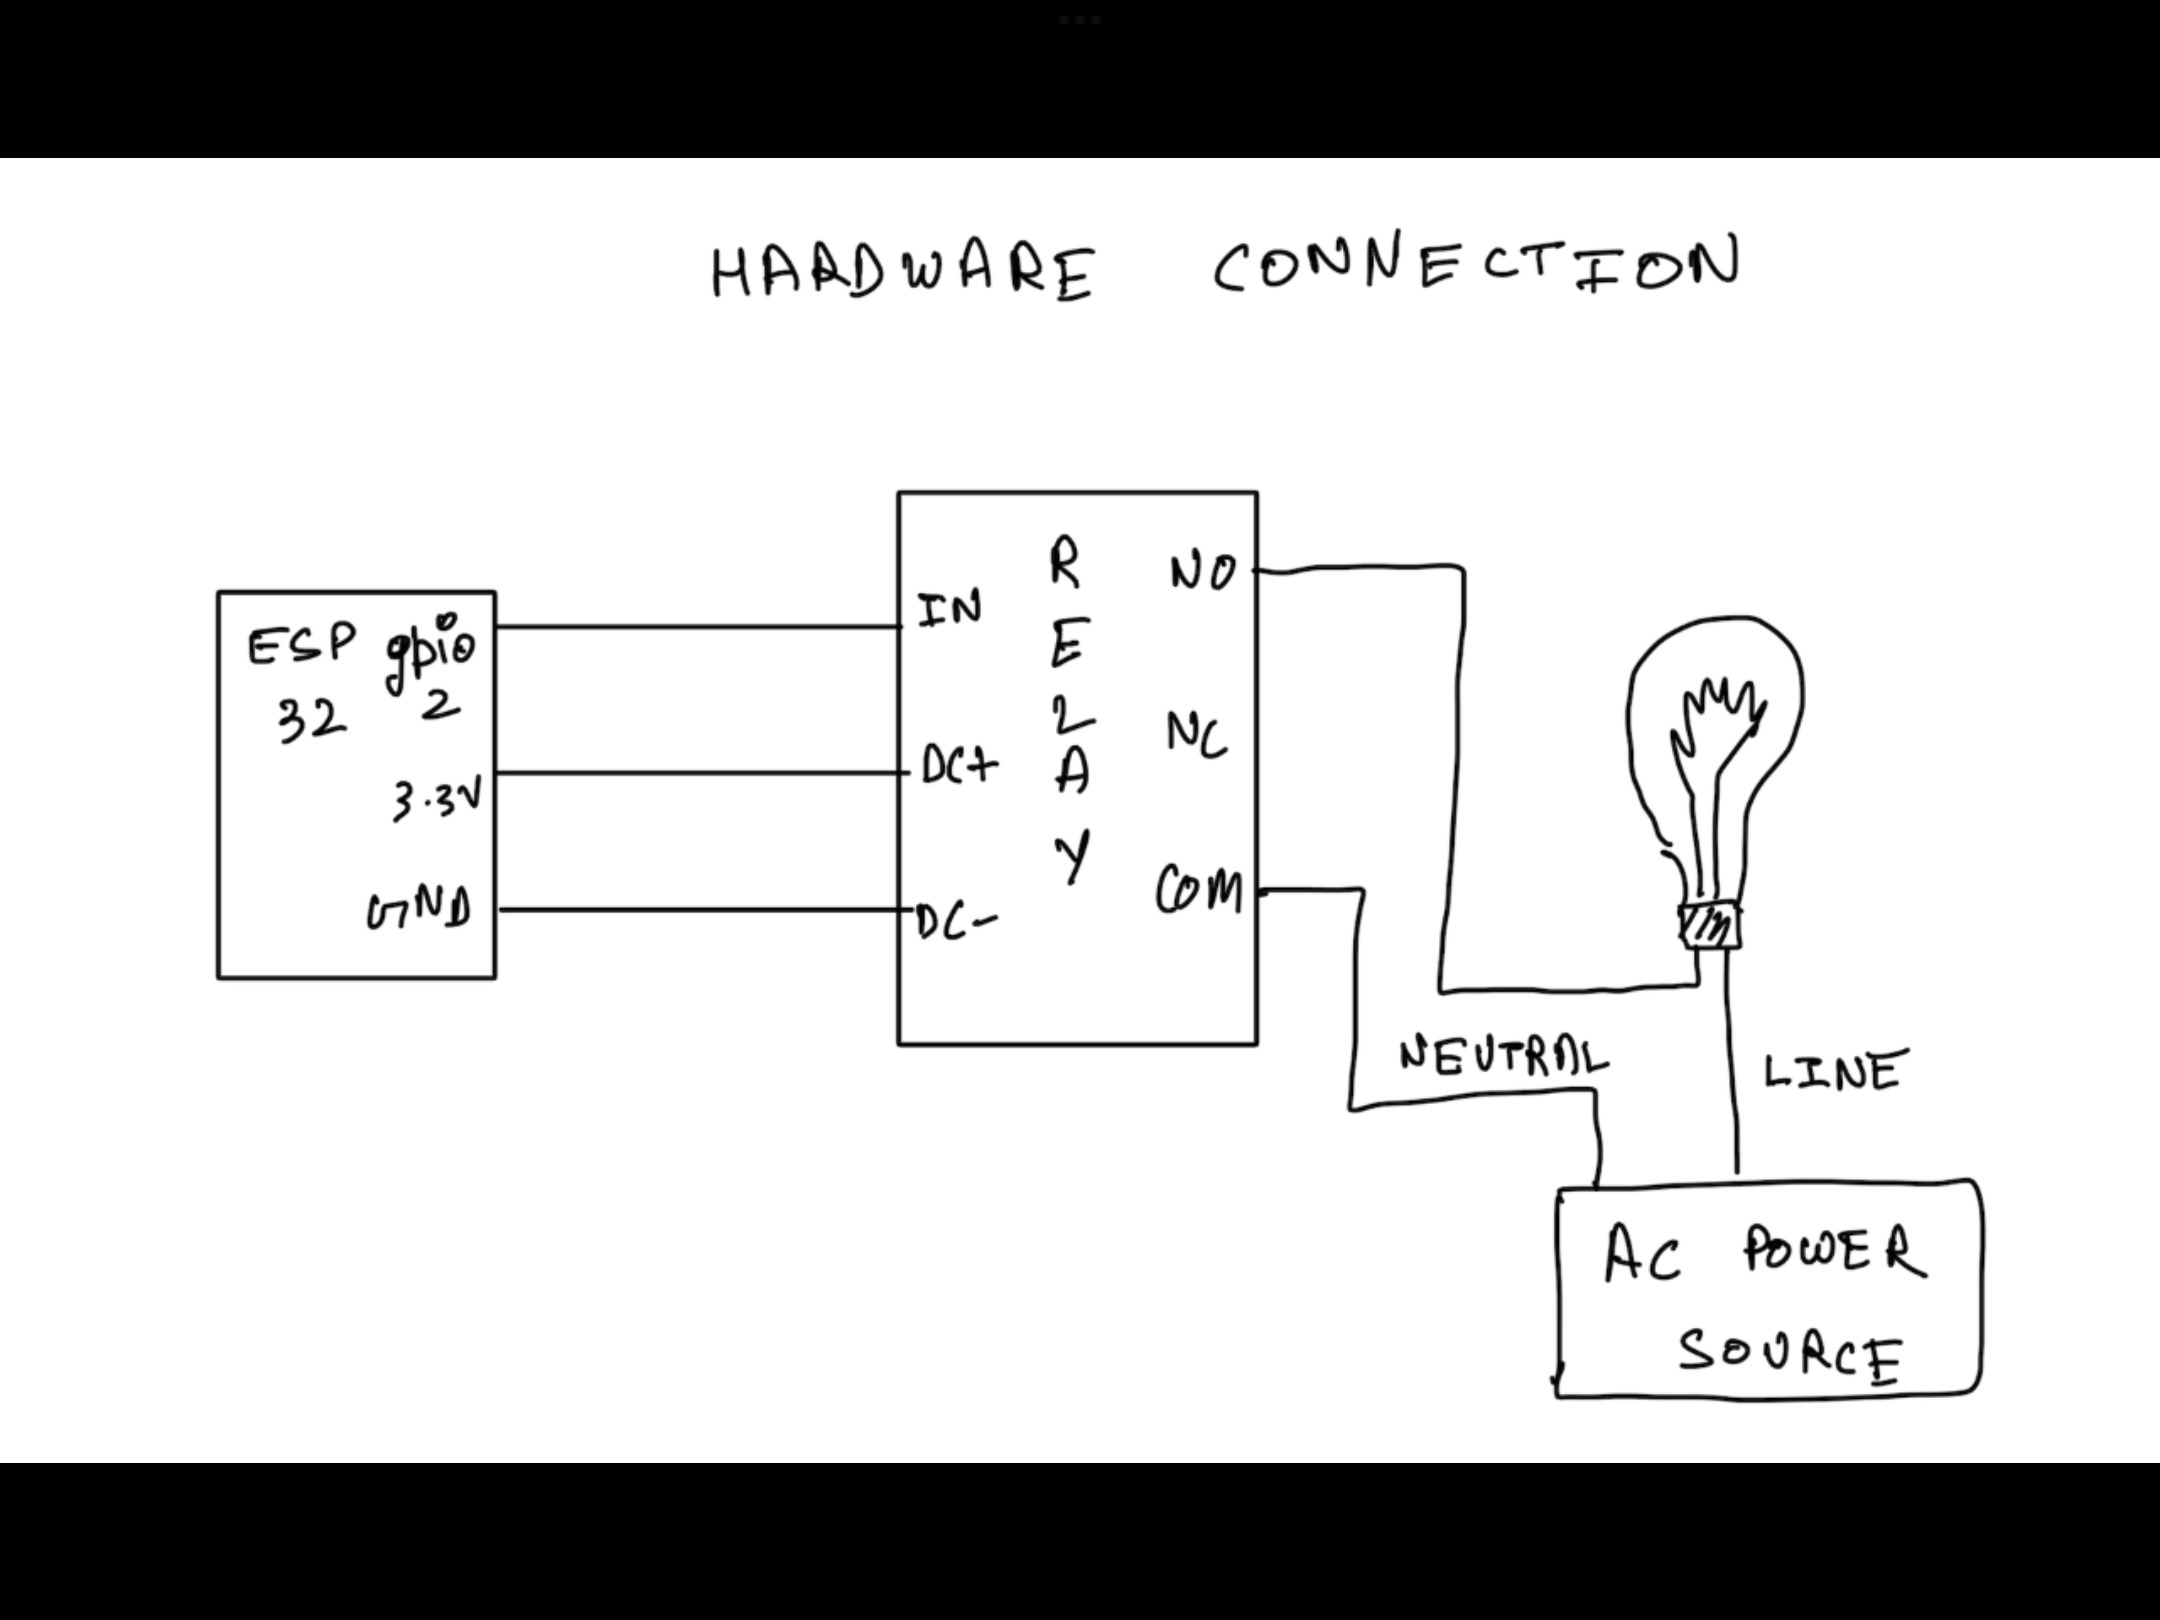 HARDWARE CONNECTION
ESP
32
gpio
2
3.3V
GND
IN
DC+
DC-
RELAY
NO
NC
COM
NEUTRAL
LINE
AC POWER
SOURCE